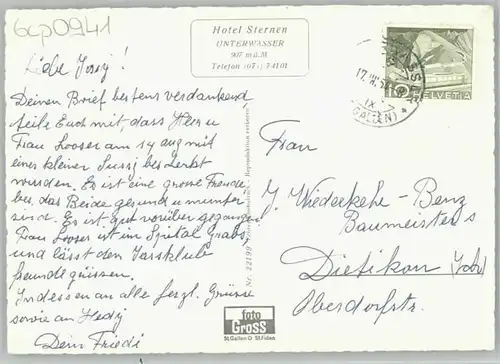 bcp0941
Hotel Sternen
UNTERWASSER
907 m ü. M
Telefon (071) 7 41 01
HELVETIA
Liebe Jossy!
Deinen Brief bestens verdankend,
teile Euch mit, dass Herr u
Frau Looser am 14 aug mit
einer kleiner Sussy beschenkt
wurden. Es ist eine grosse Freude
bei, das Beide gesund u munter
sind. Es ist gut vorüber gegangen
Frau Looser ist im Spital Grabs,
und lässt den Jassklub
freundl. grüssen.
Indessen an alle herzl. Grüsse
sowie an Hedy
Dein Friedi
Nr. 22199
Reproduktion verboten
Frau
J. Wiederkehr-Benz
Baumeisters
Dietikon
Oberdorfstr.
foto
GROSS
St. Gallen O St. Fiden